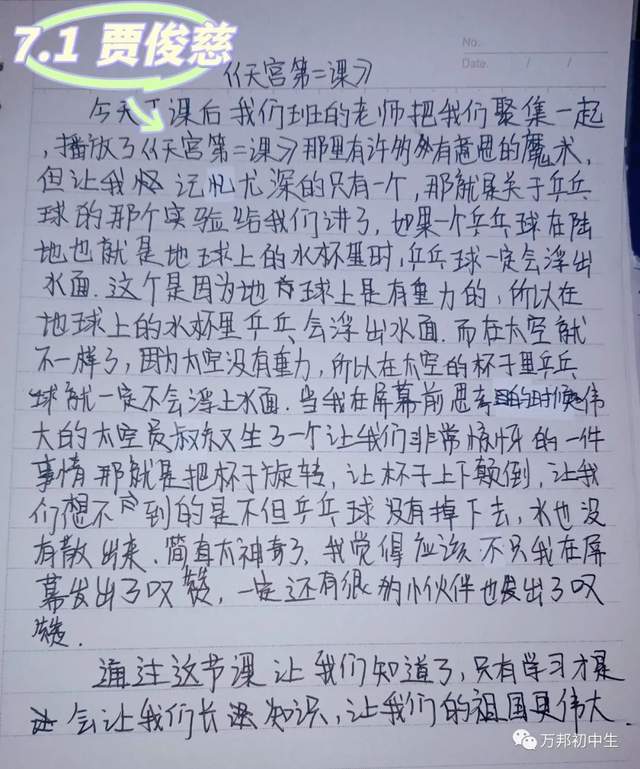 7.1 贾俊慈
No.
Date. / /
《天宫第二课》
今天下课后我们班的老师把我们聚集一起
,播放了《天宫第二课》那里有许多有意思的魔术,
但让我记忆尤深的只有一个,那就是关于乒乓
球的那个实验给我们讲了,如果一个乒乓球在陆
地也就是地球上的水杯里时,乒乓球一定会浮出
水面.这个是因为地球上是有重力的,所以在
地球上的水杯里乒乓会浮出水面.而在太空就
不一样了,因为太空没有重力,所以在太空的杯子里乒乓
球就一定不会浮上水面.当我在屏幕前思考的时候伟
大的太空员叔叔又生了一个让我们非常惊讶的一件
事情那就是把杯子旋转,让杯子上下颠倒,让我
们想不到的是不但乒乓球没有掉下去,水也没
有散出来.简直太神奇了.我觉得应该不只我在屏
幕发出了叹,一定还有很的小伙伴也发出了叹
.
通过这节课让我们知道了,只有学习才是
会让我们长知识,让我们的祖国更伟大
万邦初中生